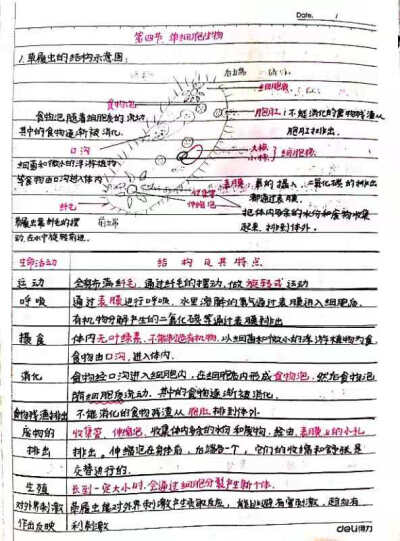 Date. /
第四节 单细胞生物
1.草履虫的结构示意图:
细胞质
食物泡
食物泡随着细胞质的流动,
其中的食物逐渐被消化.
胞肛:不能消化的食物残渣从
胞肛排出.
口沟
细菌和微小的浮游植物
等食物由口沟进入体内
大核
小核
细胞核
表膜:氧的摄入、二氧化碳的排出
都通过表膜.
收集管
伸缩泡
把体内多余的水分和废物收集
起来,排到体外.
纤毛
草履虫靠纤毛的摆
动,在水中旋转前进.
生命活动 结构及其特点
运动 全身布满纤毛,通过纤毛的摆动,做旋转式运动
呼吸 通过表膜进行呼吸,水里溶解的氧气通过表膜进入细胞后,
有机物分解产生的二氧化碳等通过表膜排出
摄食 体内无叶绿素,不能制造有机物,以细菌和微小的浮游植物为食,
食物由口沟,进入体内.
消化 食物经口沟进入细胞内,在细胞质内形成食物泡,然后食物泡
随细胞质流动,其中的食物逐渐被消化.
食物残渣排出 不能消化的食物残渣从胞肛排到体外
废物的 收集管、伸缩泡,收集体内多余的水分和废物,经由表膜上的小孔
排出 排出,伸缩泡在身体前、后端各一个,它们的收缩和舒张是
交替进行的.
生殖 长到一定大小时,会通过细胞分裂产生新个体.
对外界刺激 草履虫能对外界刺激产生反应,能趋避有害刺激,趋向有
作出反映 利刺激
deli得力